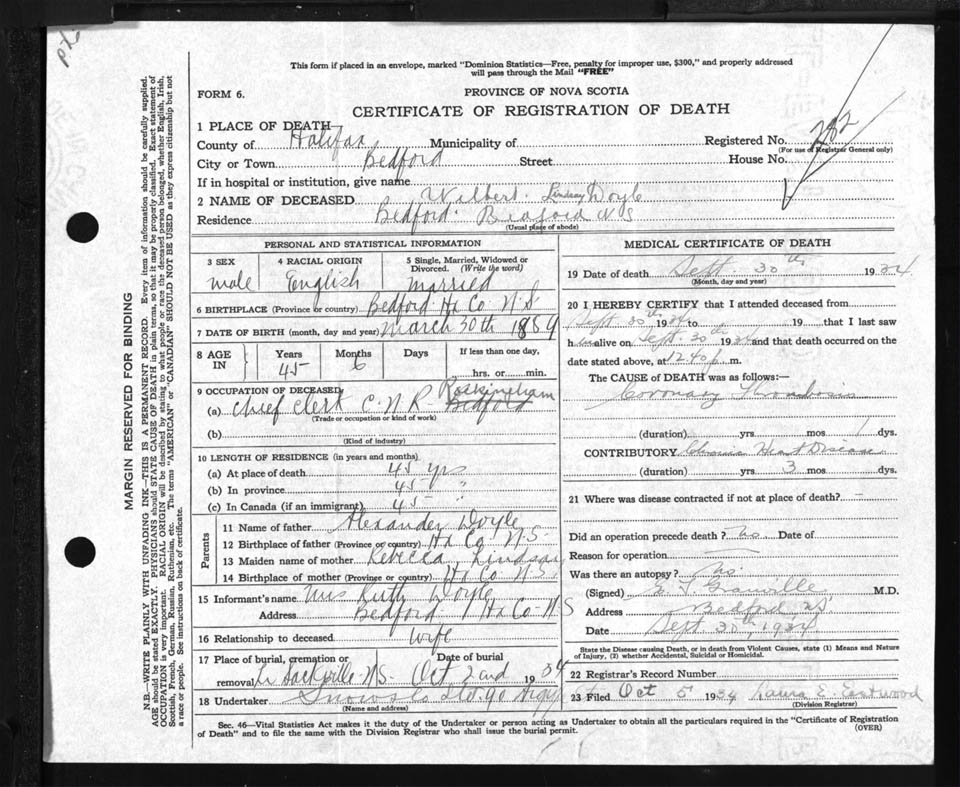 This form if placed in an envelope, marked "Dominion Statistics—Free, penalty for improper use, $300," and properly addressed
will pass through the Mail "FREE"
FORM 6.
PROVINCE OF NOVA SCOTIA
CERTIFICATE OF REGISTRATION OF DEATH
1 PLACE OF DEATH
County of Halifax Municipality of Registered No. 282
(For use of Registrar General only)
City or Town Bedford Street House No.
If in hospital or institution, give name
2 NAME OF DECEASED Wilbert Lindsay Doyle
Residence Bedford Bedford N S
(Usual place of abode)
PERSONAL AND STATISTICAL INFORMATION
3 SEX 4 RACIAL ORIGIN 5 Single, Married, Widowed or
Divorced. (Write the word)
male English married
6 BIRTHPLACE (Province or country) Bedford Hx Co N.S
7 DATE OF BIRTH (month, day and year) March 30th 1889
8 AGE IN Years Months Days If less than one day,
45 6 hrs. or min.
9 OCCUPATION OF DECEASED Rockingham
(a) Chief Clerk C.N.R. Bedford
(Trade or occupation or kind of work)
(b)
(Kind of industry)
10 LENGTH OF RESIDENCE (in years and months)
(a) At place of death 45 yrs
(b) In province 45 "
(c) In Canada (if an immigrant) 45 "
Parents
11 Name of father Alexander Doyle
12 Birthplace of father (Province or country) Hx Co N.S.
13 Maiden name of mother Rebecca Lindsay
14 Birthplace of mother (Province or country) Hx Co N.S.
15 Informant's name Mrs Ruth Doyle
Address Bedford Hx Co-N S
16 Relationship to deceased wife
17 Place of burial, cremation or Date of burial
removal Sackville N.S. Oct 2nd 1934
18 Undertaker Snows
(Name and address)
MEDICAL CERTIFICATE OF DEATH
19 Date of death Sept. 30th 1934
(Month, day and year)
20 I HEREBY CERTIFY that I attended deceased from
Sept 30th 1934 to 19 that I last saw
him alive on Sept. 30th 1934 and that death occurred on the
date stated above, at 12.40 p. m.
The CAUSE of DEATH was as follows:—
Coronary Thrombosis
(duration) yrs mos 1 dys.
CONTRIBUTORY Chronic Heart Disease
(duration) yrs 3 mos. dys.
21 Where was disease contracted if not at place of death? —
Did an operation precede death? no Date of
Reason for operation
Was there an autopsy? no.
(Signed) Granville M.D.
Address Bedford NS
Date Sept. 30th, 1934
State the Disease causing Death, or in death from Violent Causes, state (1) Means and Nature
of Injury, (2) whether Accidental, Suicidal or Homicidal.
22 Registrar's Record Number
23 Filed Oct 5 1934 Laura E. Eastwood
(Division Registrar)
Sec. 46—Vital Statistics Act makes it the duty of the Undertaker or person acting as Undertaker to obtain all the particulars required in the "Certificate of Registration
of Death" and to file the same with the Division Registrar who shall issue the burial permit.
(OVER)
MARGIN RESERVED FOR BINDING
N.B.—WRITE PLAINLY WITH UNFADING INK—THIS IS A PERMANENT RECORD. Every item of information should be carefully supplied.
AGE should be stated EXACTLY. PHYSICIANS should STATE CAUSE OF DEATH in plain terms, so that it may be properly classified. Exact statement of
OCCUPATION is very important. RACIAL ORIGIN will be described by stating to what people or race the deceased person belonged, whether English, Irish,
Scottish, French, German, Russian, Ruthenian, etc. The terms "AMERICAN" or "CANADIAN" SHOULD NOT BE USED as they express citizenship but not
a race or people. See instructions on back of certificate.